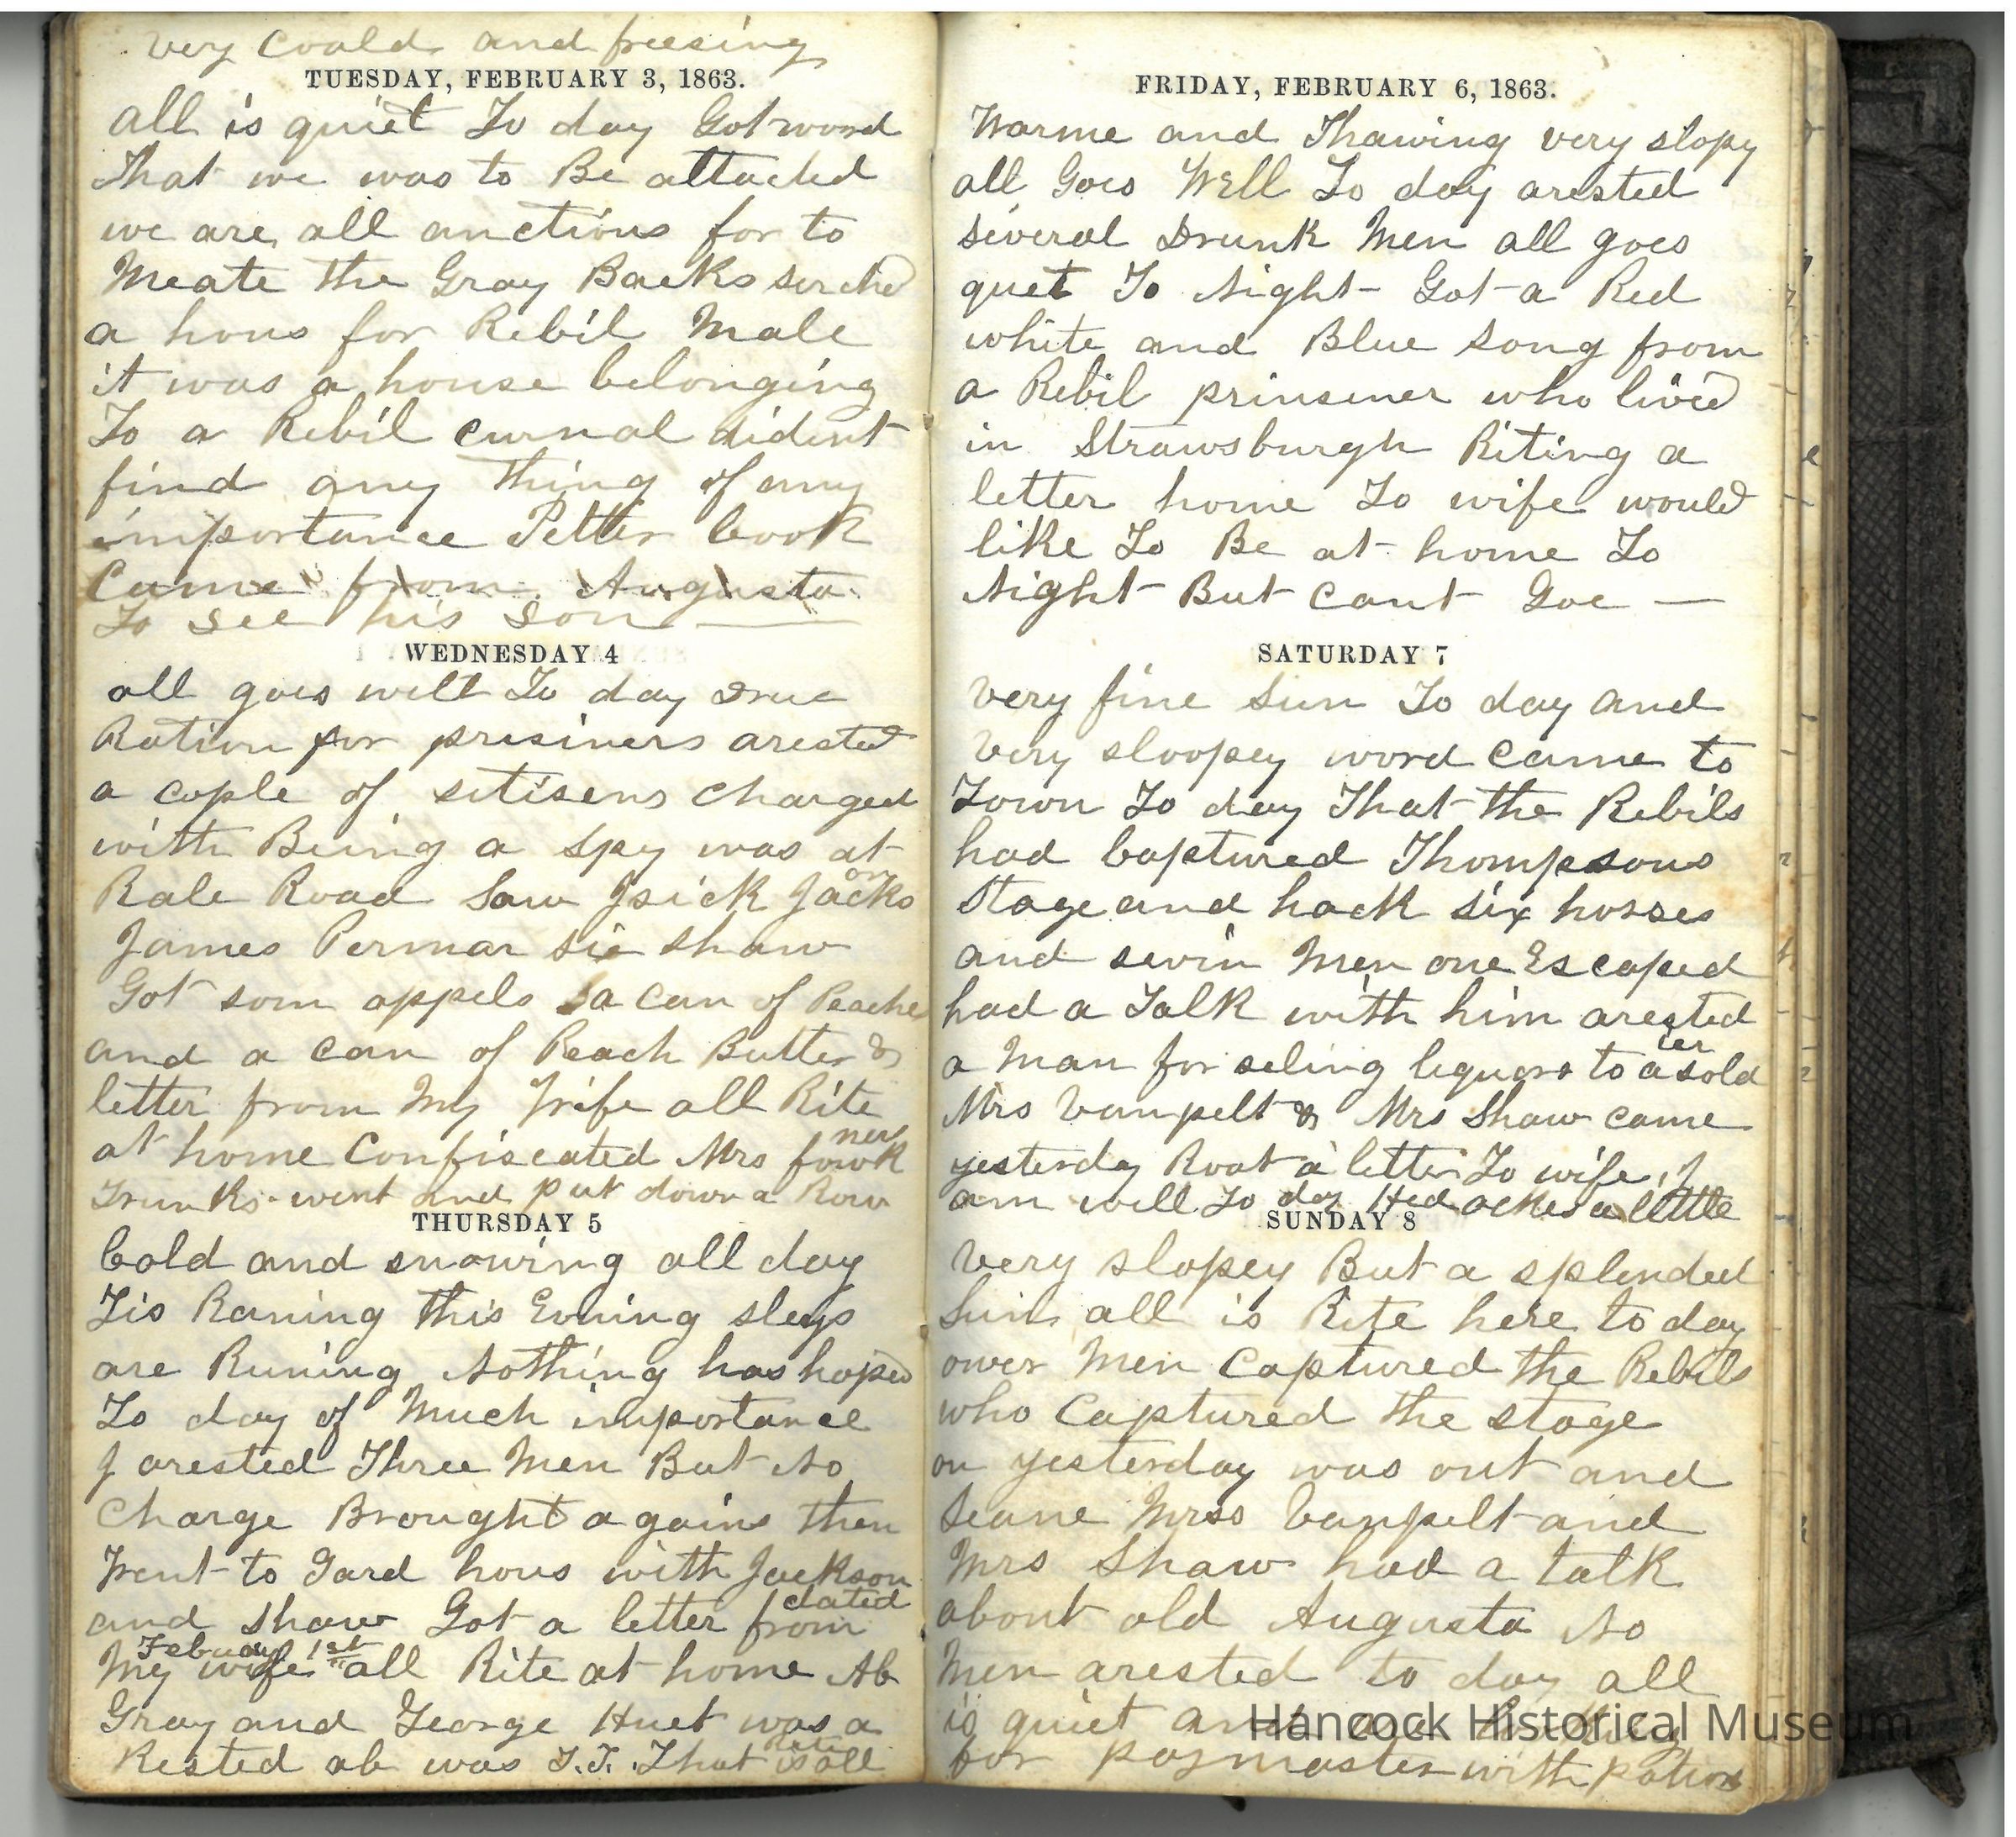 very Coald and freesing
TUESDAY, FEBRUARY 3, 1863.
all is quiet To day Got word
That we was to Be attacted
we are all anctious for to
Meate the Gray Backs serched
a hous for Rebil Male
it was a house belonging
To a Rebil curnal dident
find any thing of any
importance Petter Cook
Came from Augusta
To see his son —
WEDNESDAY 4
all goes well To day Drue
Ration for prisiners arested
a cople of sitisens charged
with Being a spy was at
Rale Road Saw Isick Jacks
on
James Permar sie Shaw
Got som appels a can of Peaches
and a can of Peach Butter &
letter from My Wife all Rite
at home Confiscated Mrs
Trunks went and put down a Row
THURSDAY 5
Cold and snowing all day
Tis Raning this Evning sleys
are Runing Nothing has haped
To day of Much importance
I arested Three Men But No
Charge Brought agains then
Went to Gard hous with Jackson
and Shaw Got a letter from
dated
Febuary 1st
My wife all Rite at home Ab
Gray and George Huet was a
Rested ab was T.T. That is all
FRIDAY, FEBRUARY 6, 1863.
Warme and Thawing very slopy
all Goes Well To day arested
several Drunk Men all goes
quet To Night Got a Red
white and Blue song from
a Rebil prinsener who lived
in Strawsburgh Riting a
letter home To wife would
like To Be at home To
Night But cant Goe —
SATURDAY 7
Very fine Sun To day and
Very sloopey word came to
Town To day That the Rebils
had Captured Thompsons
Stage and hack six horses
and sevin Men one Escaped
had a Talk with him arested
a Man for seling liquors to a sold
ier
Mrs Vanpelt & Mrs Shaw came
yesterday Roat a letter To wife I
am well To day Hed aches a little
SUNDAY 8
Very slopey But a splended
Sun all is Rite here to day
ower Men Captured the Rebils
who Captured the stage
on yesterday was out and
seane Mrss Vanpelt and
Mrs Shaw had a talk
about old Augusta No
Men arested to day all
is quiet and are
for paymaster with
Hancock Historical Museum